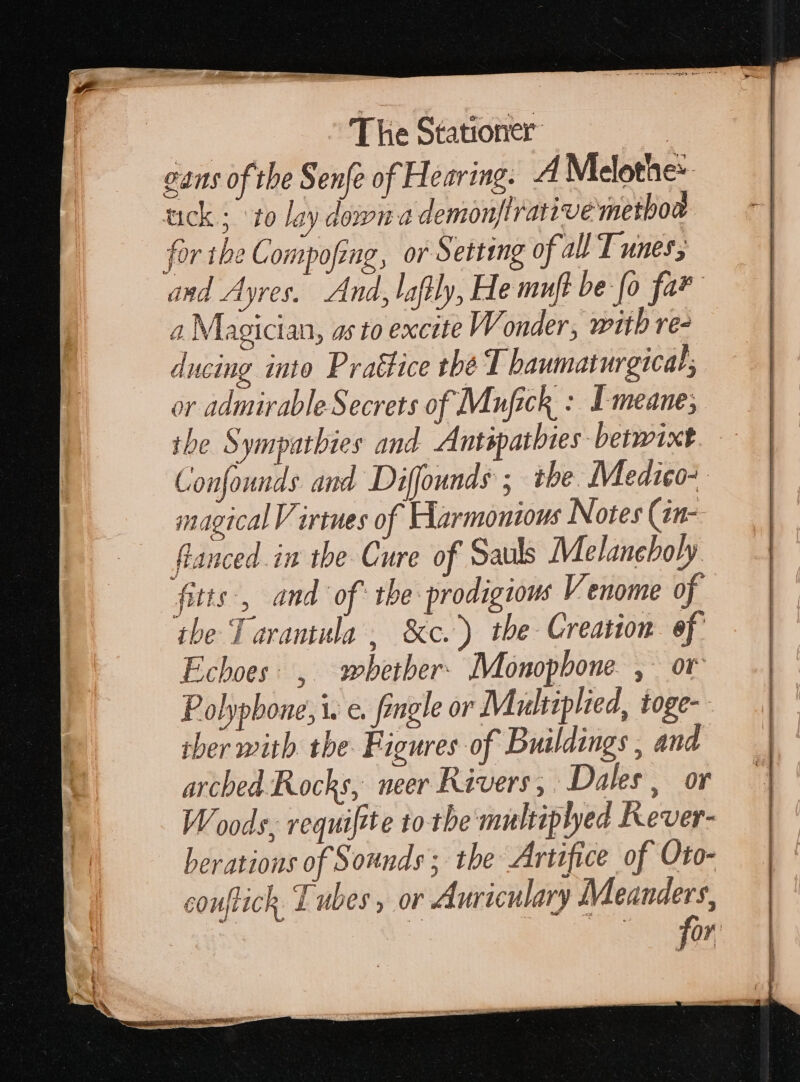 The Stationer
gans of the Senſe of Hearing. A Melothe-
tick; to lay down a demonſtrative method
for the Compoſing, or Setting of all Tunes,
and Ayres. And, laſtly, He muſt be ſo far
a Magician, as to excite Wonder, with re-
ducing into Practice the Thaumaturgical,
or admirable Secrets of Muſick: I meane,
the Sympathies and Antipathies betwixt
Conſounds and Diſſounds; the Medico-
magical Virtues of Harmonious Notes (in-
ſtanced in the Cure of Sauls Melancholy
fitts, and of the prodigious Venome of
the Tarantula, &c.) the Creation of
Echoes, whether Monophone, or
Polyphone, i. e. ſingle or Multiplied, toge-
ther with the Figures of Buildings, and
arched Rocks, neer Rivers, Dales, or
Woods, requiſite to the multiplyed Rever-
berations of Sounds; the Artifice of Oto-
couſtick Tubes, or Auriculary Meanders,
for